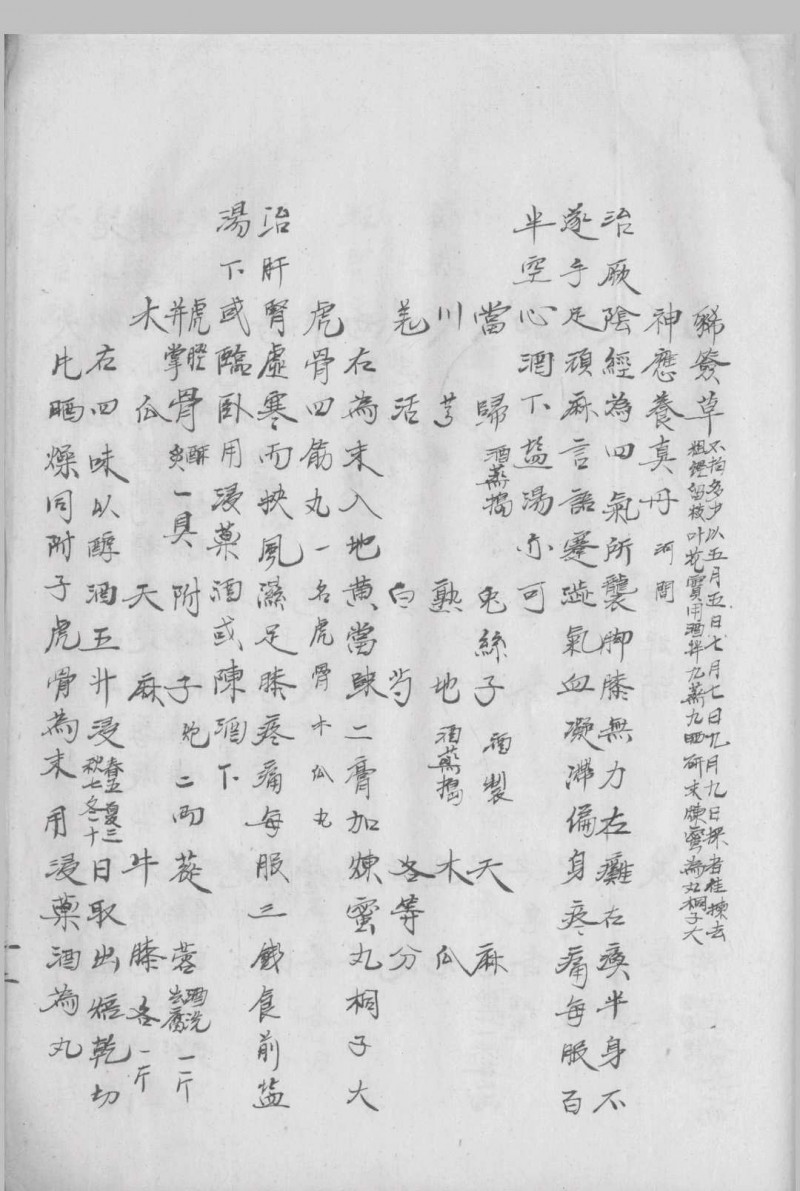 豨薟草不拘多少以五月五日七月七日九月九日採者佳揀去
粗莖留枝叶花實用酒拌九蒸九晒研末煉蜜為丸桐子大
神應養真丹河間
治厥陰經為四氣所襲脚膝無力左癱右瘓半身不
遂手足頑麻言語蹇澁氣血凝滯偏身疼痛每服百
半空心酒下盐湯亦可
當歸酒蒸搗 兎絲子酒製 天麻
川芎 熟地酒蒸搗 木瓜
羌活 白芍 各等分
右為末入地黃當歸二膏加煉蜜丸桐子大
虎骨四觔丸一名虎骨木瓜丸
治肝腎虛寒而挾風濕足膝疼痛每服三錢食前盐
湯下或臨臥用浸藥酒或陳酒下
虎脛骨并掌酥炙一具 附子炮二両 蓯蓉酒洗去腐一斤
木瓜 天麻 牛膝各一斤
右四味以醇酒五升浸春五夏三秋七冬十日取出焙乾切
片晒燥同附子虎骨為末用浸藥酒為丸